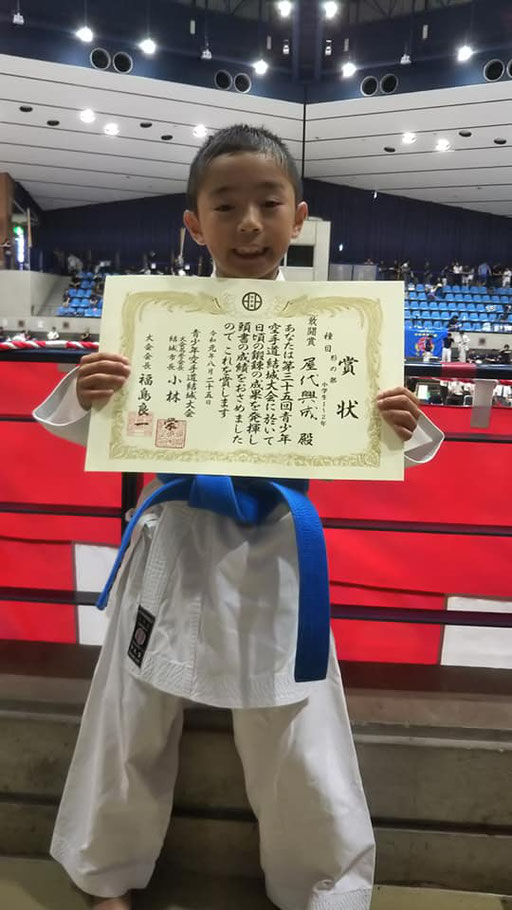 賞状
種目 形の部 小学生1~2年
敢闘賞
屋代興成 殿
あなたは第三十五回青少年
空手道結城大会に於いて
日頃の鍛錬の成果を発揮し
頭書の成績をおさめました
ので これを賞します
令和元年八月二十五日
青少年空手道結城大会
大会名誉会長
結城市長 小林 栄
大会会長 福島良一